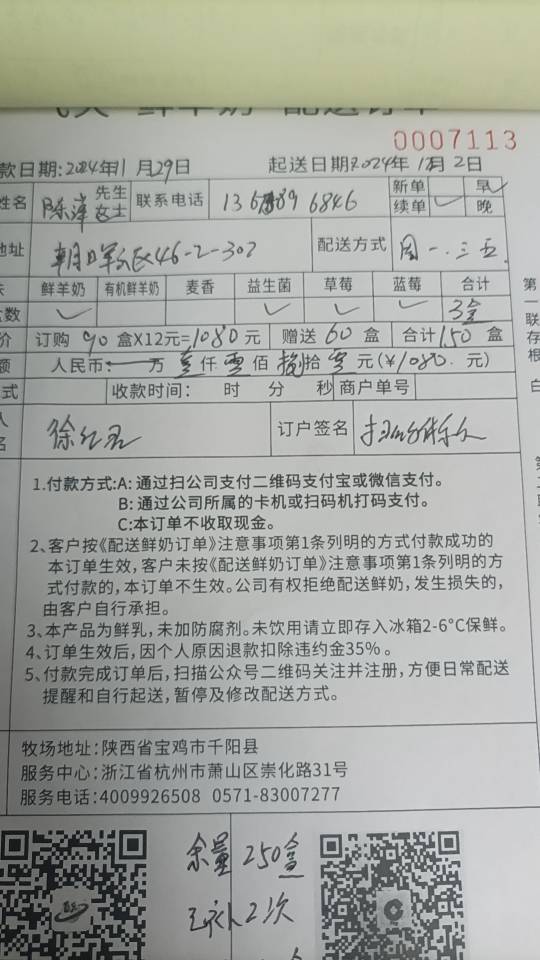 鲜羊奶 配送订单
0007113
款日期:2024年11月29日 起送日期2024年12月2日
姓名 陈萍 先生 女士 联系电话 6846 新单 早✓
续单 ✓ 晚
地址 46-2-302 配送方式 周一.三.五.
鲜羊奶 有机鲜羊奶 麦香 益生菌 草莓 蓝莓 合计
盒数 ✓ ✓ ✓ ✓ 3盒
价 订购 90 盒X12元=1080元 赠送 60 盒 合计 150 盒
额 人民币: 万 壹仟零佰捌拾零元(¥1080. 元)
式 收款时间: 时 分 秒 商户单号
人
名 订户签名
第
一
联
存
根
白
1.付款方式:A: 通过扫公司支付二维码支付宝或微信支付。
B: 通过公司所属的卡机或扫码机打码支付。
C:本订单不收取现金。
2、客户按《配送鲜奶订单》注意事项第1条列明的方式付款成功的
本订单生效,客户未按《配送鲜奶订单》注意事项第1条列明的方
式付款的,本订单不生效。公司有权拒绝配送鲜奶,发生损失的,
由客户自行承担。
3、本产品为鲜乳,未加防腐剂。未饮用请立即存入冰箱2-6°C保鲜。
4、订单生效后,因个人原因退款扣除违约金35%。
5、付款完成订单后,扫描公众号二维码关注并注册,方便日常配送
提醒和自行起送,暂停及修改配送方式。
牧场地址:陕西省宝鸡市千阳县
服务中心:浙江省杭州市萧山区崇化路31号
服务电话:4009926508 0571-83007277
余量 250盒
2次